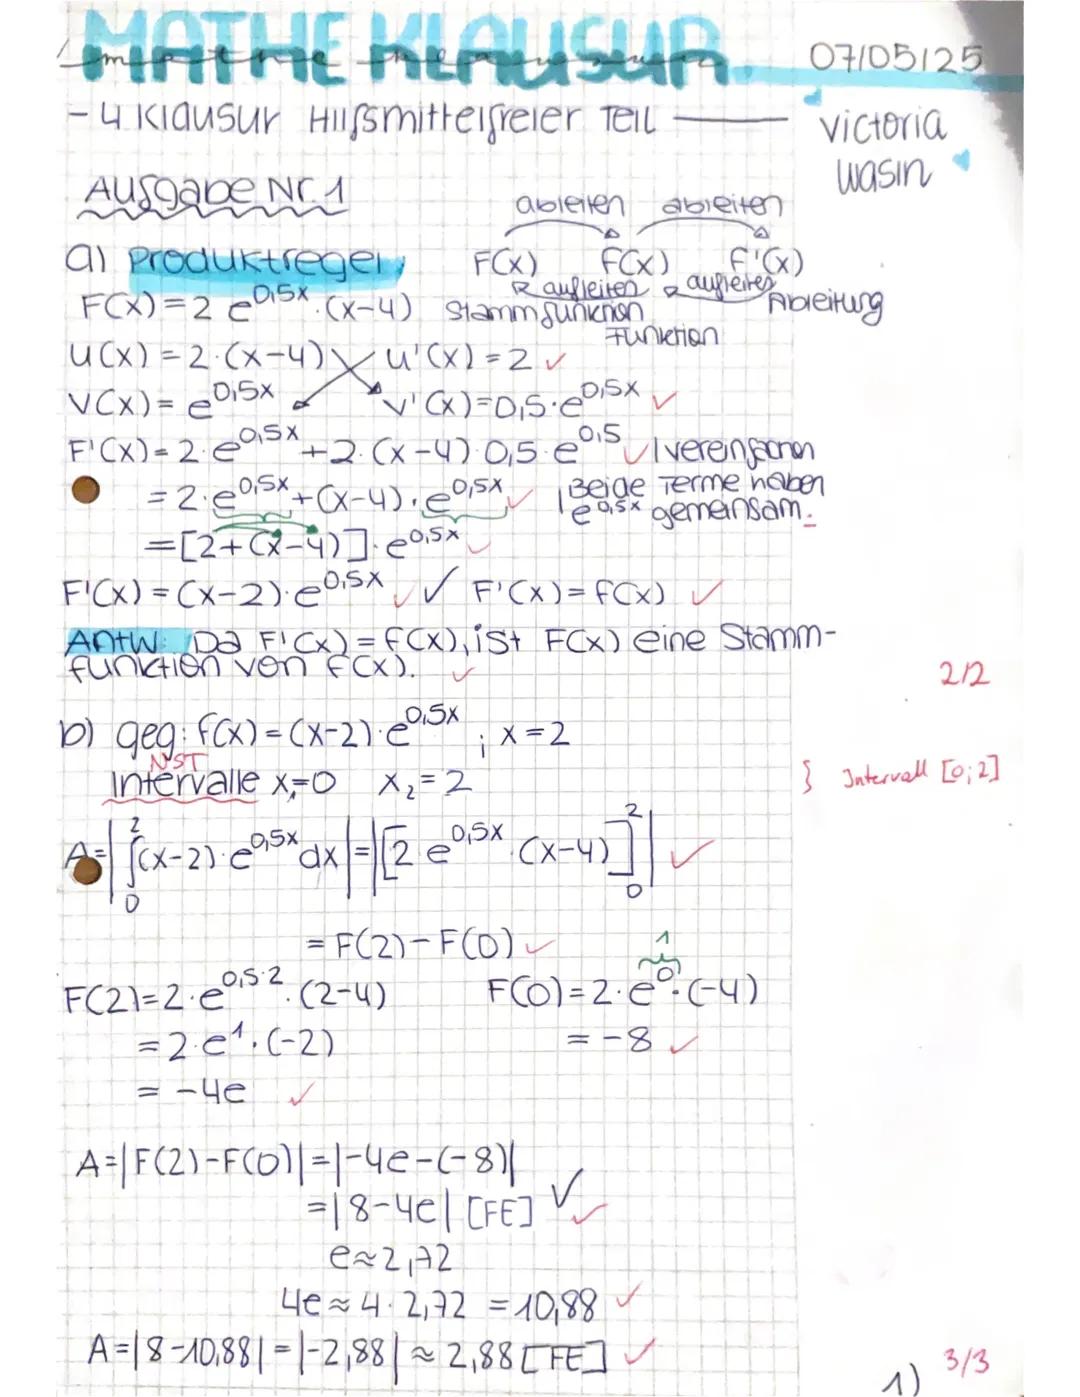 MATHE KLAUSUR 07/05/25
- 4 Klausur Hilfsmittelfreier Teil
Victoria
Wasin
Aufgabe Nr. 1
ableiten ableiten
a) Produktregel
F(x) f(x) f'(x)
aufleiten aufleiten
F(x)=2 e^0,5x · (x-4) Stammfunktion Ableitung
Funktion
u(x)=2·(x-4) u'(x)=2 ✓
v(x)=e^0,5x v'(x)=0,5·e^0,5x ✓
F'(x)=2·e^0,5x+2·(x-4)·0,5·e^0,5 ✓ | vereinfachen
=2·e^0,5x+(x-4)·e^0,5x ✓ | Beide Terme haben
e^0,5x gemeinsam.
=[2+(x-4)]·e^0,5x ✓
F'(x)=(x-2)·e^0,5x ✓ ✓ F'(x)=f(x) ✓
Antw: Da F'(x)=f(x), ist F(x) eine Stamm-
funktion von f(x). ✓
2/2
b) geg: f(x)=(x-2)·e^0,5x ; x=2
NST
Intervalle x₁=0 x₂=2 } Intervall [0;2]
A=|∫₀² (x-2)·e^0,5x dx|=|[2·e^0,5x·(x-4)]₀²| ✓
=F(2)-F(0) ✓
1
F(2)=2·e^0,5·2·(2-4) F(0)=2·e^0·(-4)
=2·e^1·(-2) =-8 ✓
=-4e ✓
A=|F(2)-F(0)|=|-4e-(-8)|
=|8-4e| [FE] ✓ ✓
e≈2,72
4e≈4·2,72 =10,88 ✓
A=|8-10,88|=|-2,88|≈2,88 [FE] ✓
3/3
1)